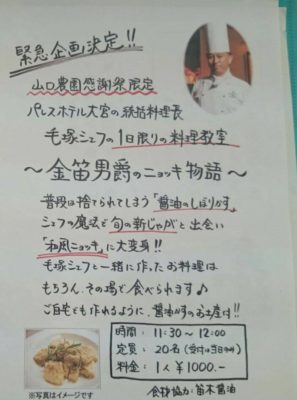 緊急企画決定!!
山口農園感謝祭限定
パレスホテル大宮の統括料理長
毛塚シェフの1日限りの料理教室
～金笛男爵のニョッキ物語～
普段は捨てられてしまう「醤油のしぼりかす」
シェフの魔法で旬の新じゃがと出会い
「和風ニョッキ」に大変身!!
毛塚シェフと一緒に作ったお料理は
もちろん、その場で食べられます♪
ご自宅でも作れるように、醤油かすのお土産付!!
時間：11:30～12:00
定員：20名(受付は当日のみ)
料金：1人¥1000-
※写真はイメージです
食材協力：笛木醤油